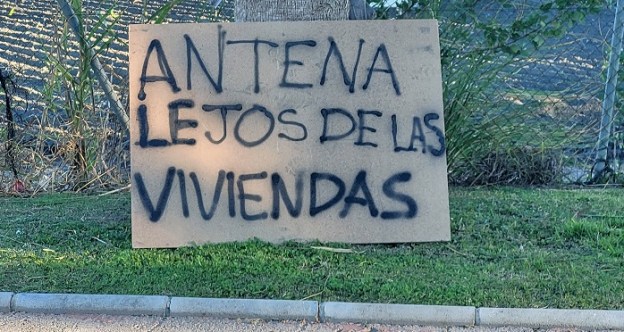 ANTENA
LEJOS DE LAS
VIVIENDAS